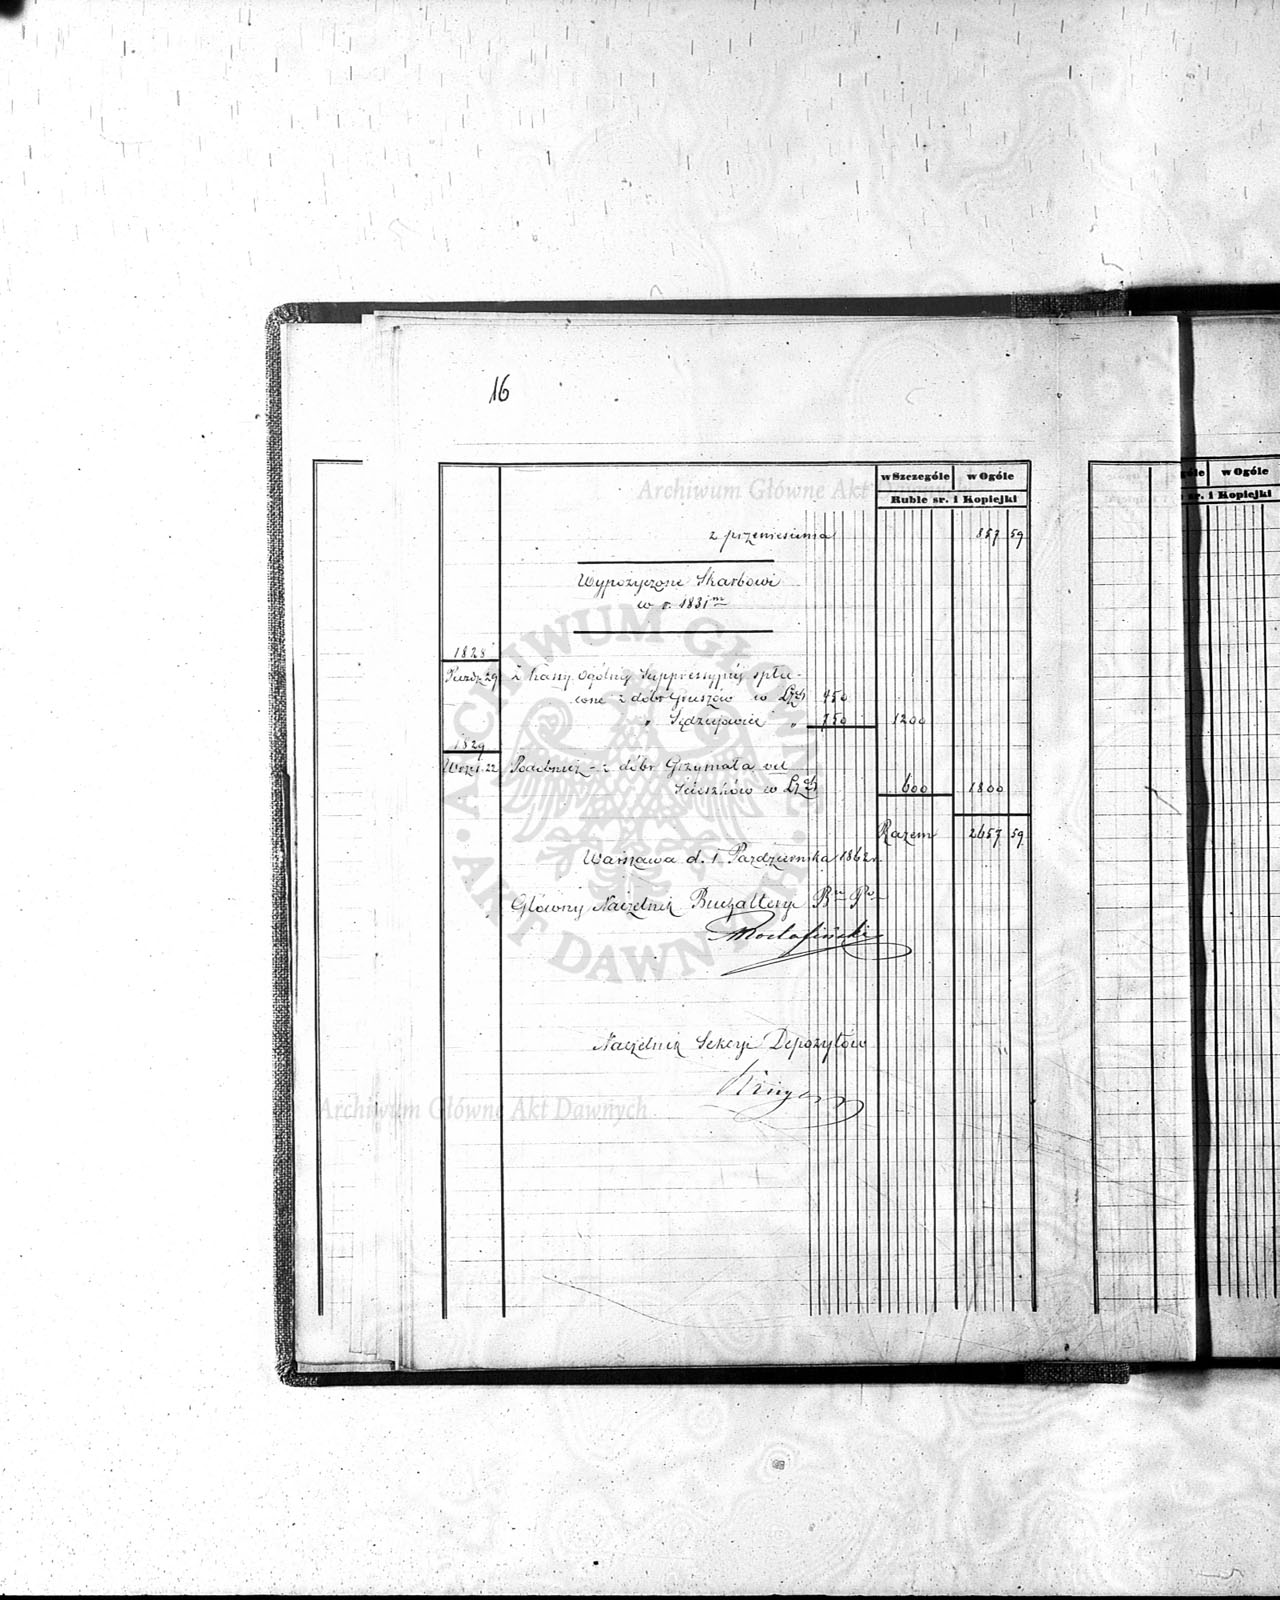 16
w Szczególe w Ogóle
Ruble sr. i Kopiejki
z przeniesienia 857 59
Wypożyczone Skarbowi
w r. 1831m
1828
Paźdz. 29 z kassy ogólnej Suppressyjnej spła-
cone z dóbr Gruszów w Lzst 450
" Sędziejowice " 750 1200
1829
Wrześ. 22 Podobnież - z dóbr Grzymała vel
w Lzst 600 1800
Razem 2657 59
Warszawa d. 1 Października 1862 r.
Główny Naczelnik Buchalteryi
Naczelnik Sekcyi Depozytów
Krüger
w Ogóle
sr. i Kopiejki
Archiwum Główne Akt Dawnych
ARCHIWUM GŁÓWNE AKT DAWNYCH
Archiwum Główne Akt Dawnych